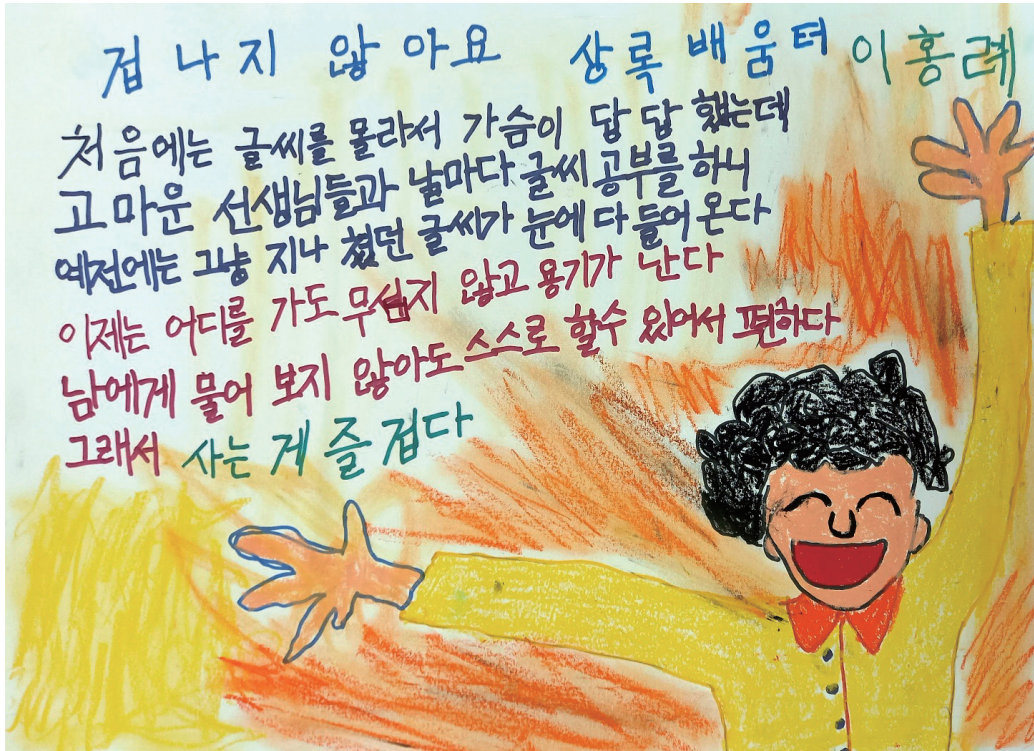 겁나지 않아요 상록배움터 이홍례
처음에는 글씨를 몰라서 가슴이 답답했는데
고마운 선생님들과 날마다 글씨 공부를 하니
예전에는 그냥 지나쳤던 글씨가 눈에 다 들어온다
이제는 어디를 가도 무섭지 않고 용기가 난다
남에게 물어 보지 않아도 스스로 할수 있어서 편하다
그래서 사는 게 즐겁다